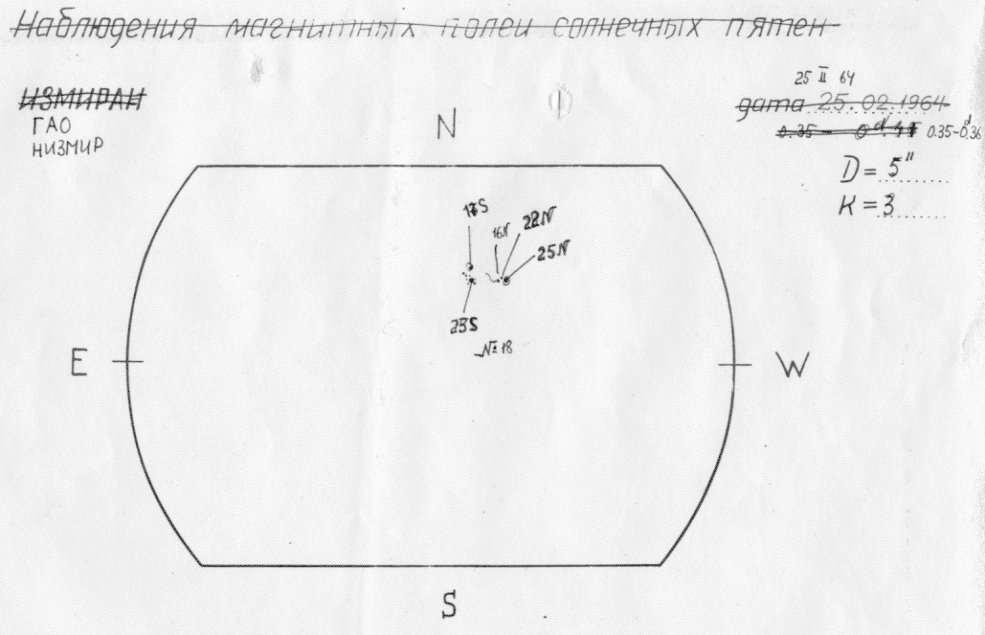 Наблюдения магнитных полей солнечных пятен
25 II 64
ИЗМИРАН
дата 25.02.1964
ГАО
0.35-0.36
НИЗМИР
N
D = 5"
K = 3
17S
16N
22N
25N
23S
№ 18
E
W
S